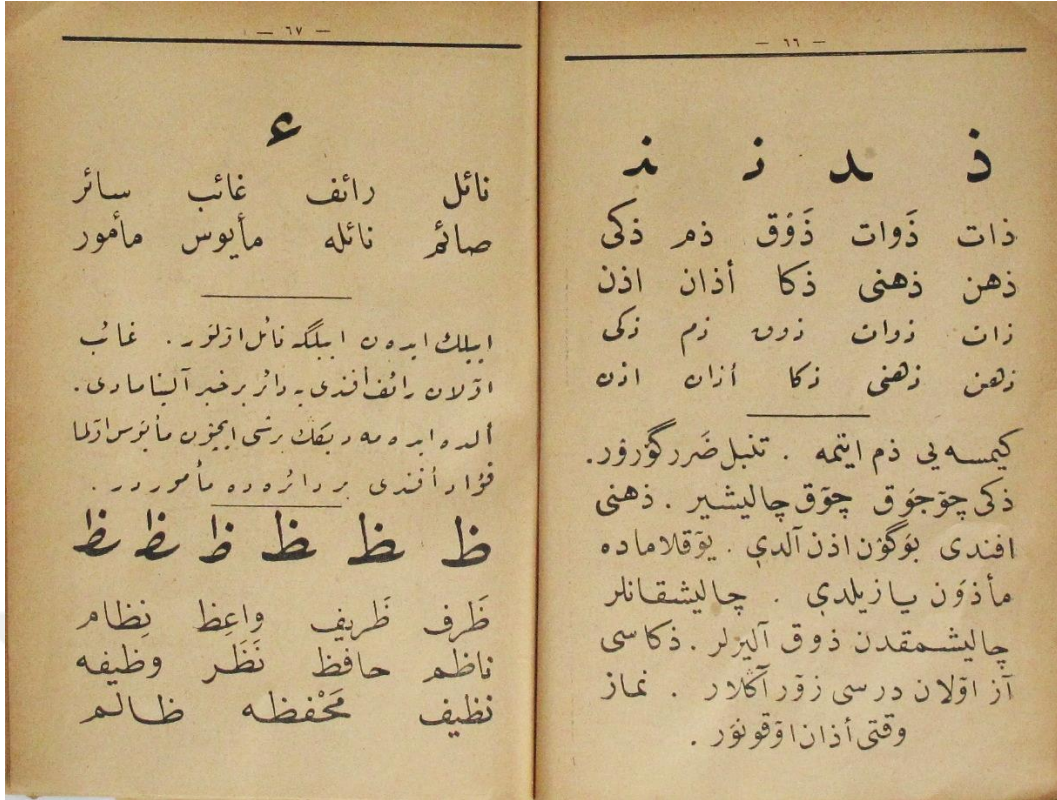 — ٦٦ —
ذ ـذ ذ ـذ
ذات ذَوات ذَوْق ذم ذكى
ذهن ذهنى ذكا أذان اذن
ذات ذوات ذوق ذم ذكى
ذهن ذهنى ذكا أذان اذن
كيمسه يى ذم ايتمه . تنبل ضَرر گۆرور.
ذكى چۆجوَق چوَق چاليشير . ذهنى
افندى بوَگوَن اذن آلدى . يوَقلاماده
مأذوَن يازيلدى . چاليشقانلر
چاليشمقدن ذوق آليرلر . ذكاسى
آز اوَلان درسى زوَر آڭلار . نماز
وقتى أذان اوَقونوَر .
— ٦٧ —
ء
نائل رائف غائب سائر
صائم نائله مأيوس مأمور
اييلك ايدەن اييلگه نائل اوَلوَر . غائب
اوَلان رائف أفندى يه دائر بر خبر آلينامادى .
ألده ايده مه ديكك بر شى ايچوَن مأيوَس اوَلما
فؤاد أفندى بر دائره ده مأموردر .
ظ ـظ ـظ ظ ـظ ـظ
ظَرف ظَريف واعِظ نِظام
ناظم حافظ نَظَر وظيفه
نظيف مَحْفظه ظالم